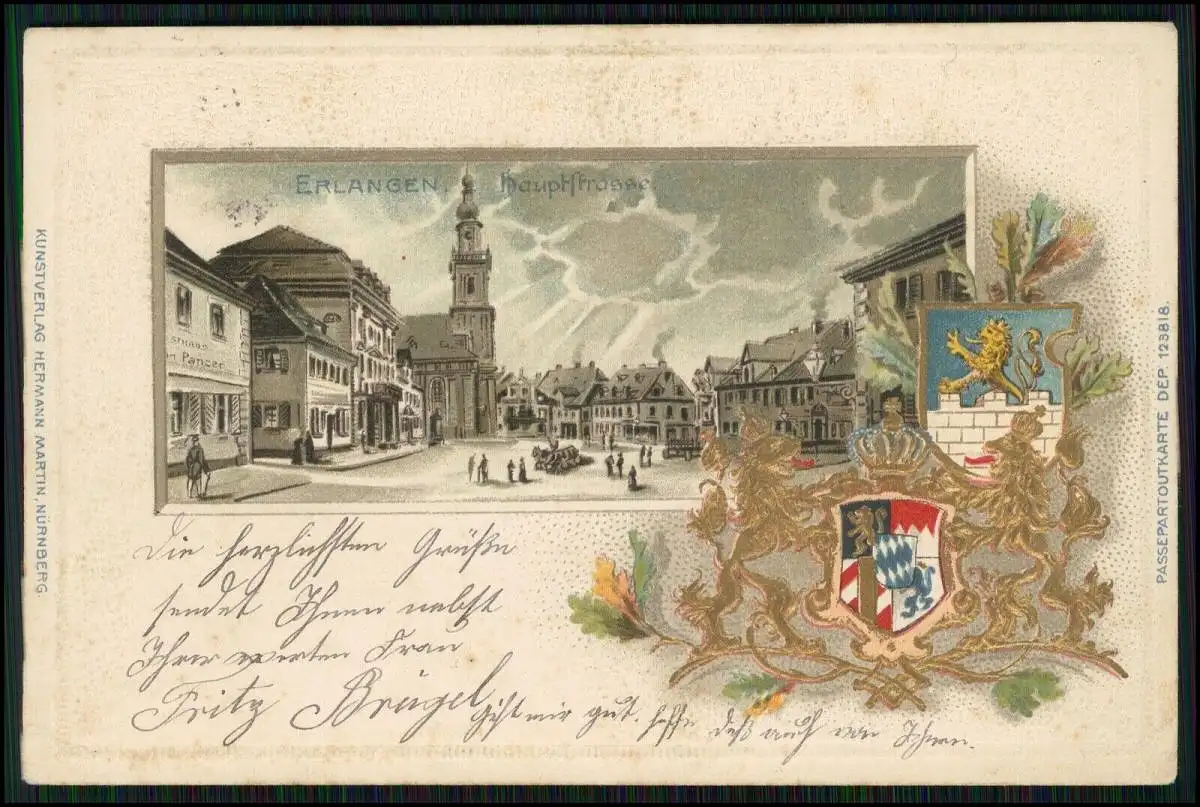 ERLANGEN. Hauptstrasse.
Panzer
KUNSTVERLAG HERMANN MARTIN, NÜRNBERG.
PASSEPARTOUTKARTE DEP. 123818.
Die herzlichsten Grüße
sendet Ihnen nebst
Ihrer werten Frau
Fritz Brügel
Geht mir gut. hoffe daß auch von Ihnen.